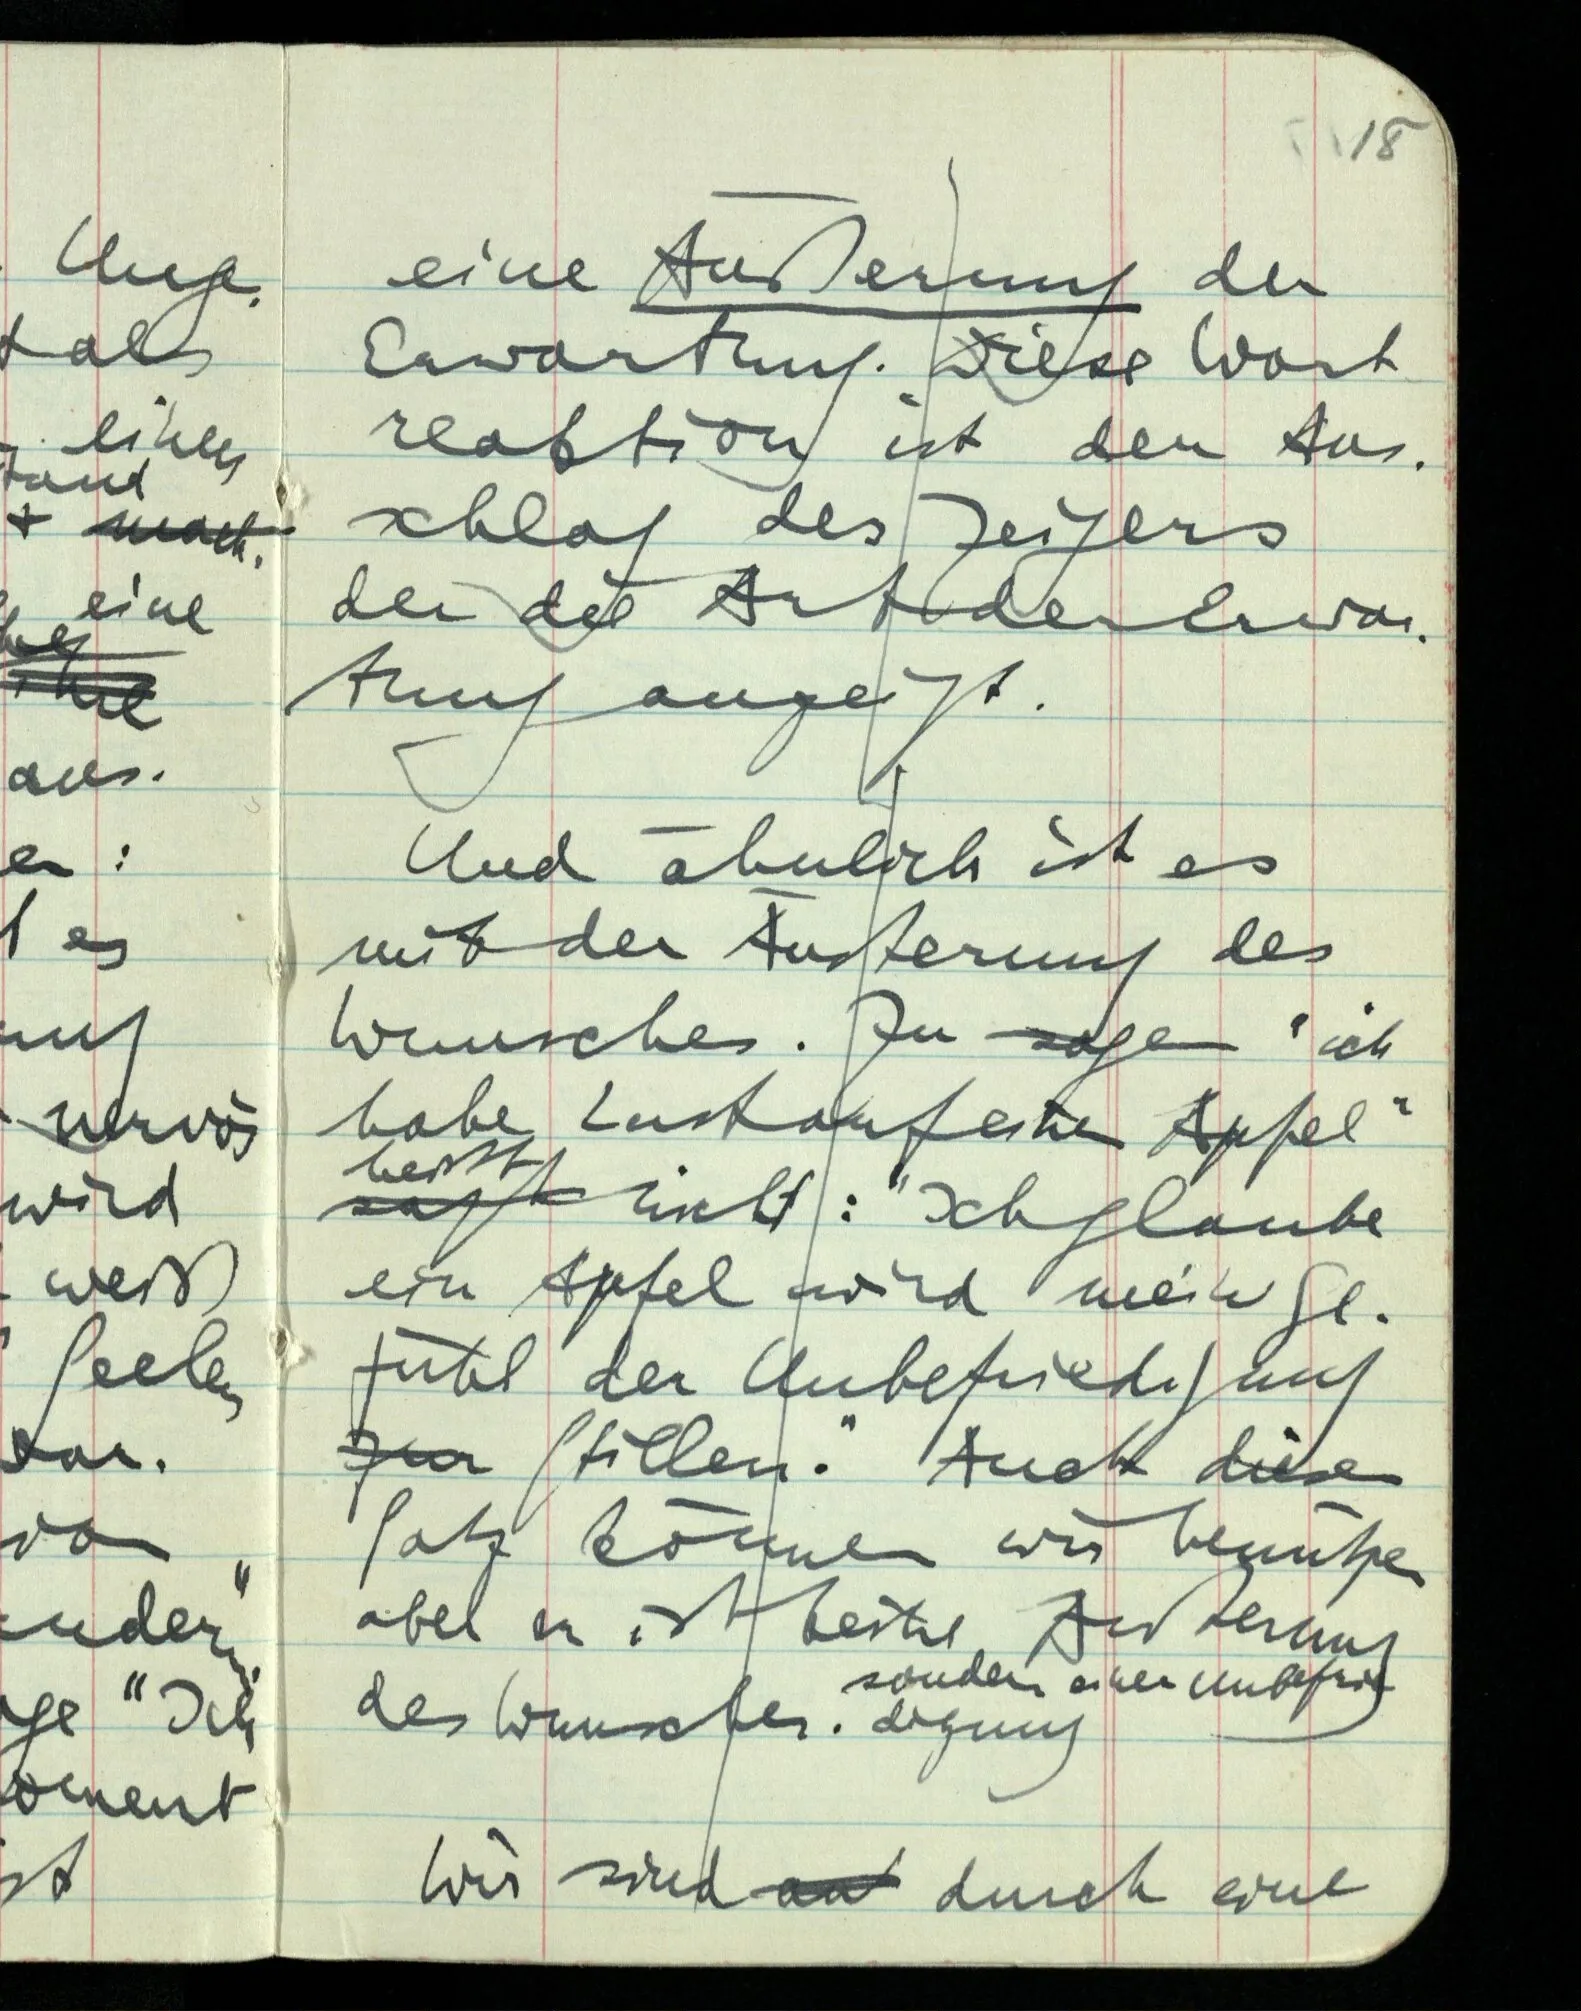 18
Unge-
als
einen
stand
mach-
eine
aus.
er:
es
nervös
wird
weiß
Seelen
von
"Ich
Moment
ist
eine Äußerung der
Erwartung. Diese Wort
reaktion ist der Aus-
schlag des Zeigers
der die Art der Erwar-
tung anzeigt.
Und ähnlich ist es
mit der Äußerung des
Wunsches. Zu sagen "ich
habe Lust auf einen Apfel"
heißt
sagt nicht: "Ich glaube
ein Apfel wird mein Ge-
fühl der Unbefriedigung
zur stillen." Auch dieser
Satz können wir benützen
aber er ist keine Äußerung
des Wunsches. sondern einer Unbefrie-
digung
Wir sind auf durch eine